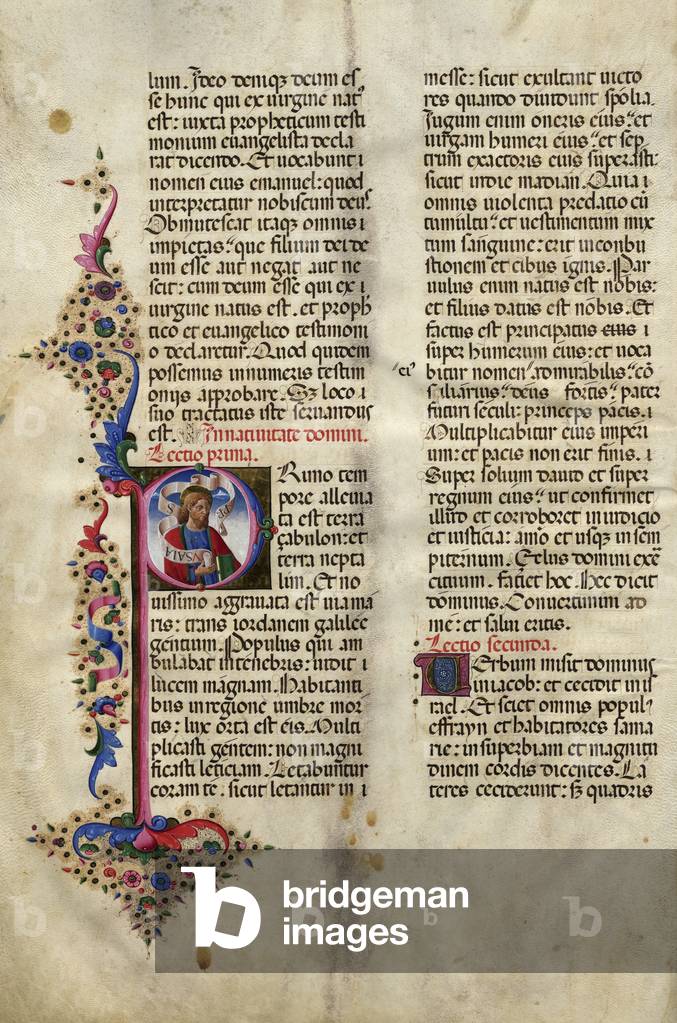 lum. Ideo deniq; deum es
se hunc qui ex uirgine nat
est: iuxta propheticum testi
monium euangelista decla
rat dicendo. Et uocabunt i
nomen eius emanuel: quod
interpretatur nobiscum deus.
Obmutescat itaq; omnis i
impietas: que filium dei de
um esse aut negat aut ne
scit: cum deum esse qui ex i
uirgine natus est. et proph
tico et euangelico testimoni
o declaretur. Quod quidem
possemus innumeris testim
oniis approbare. Sz loco i
suo tractatus iste seruandus
est. In natiuitate domini.
Lectio prima.
PRimo tem
pore alleuia
ta est terra
çabulon: et
terra nepta
lim. Et no
uissimo aggrauata est uia ma
ris: trans iordanem galilee
gentium. Populus qui am
bulabat in tenebris: uidit i
lucem magnam. Habitanti
bus in regione umbre mor
tis: lux orta est eis. Multi
plicasti gentem: non magni
ficasti leticiam. Letabuntur
coram te. sicut letantur in i
YSAIA
messe: sicut exultant uicto
res quando diuidunt spolia.
Iugum enim oneris eius: et
uirgam humeri eius: et sep
trum exactoris eius superasti:
sicut in die madian. Quia i
omnis uiolenta predatio cū
tumultu: et uestimentum mix
tum sanguine: erit in conbu
stionem et cibus ignis. Par
uulus enim natus est nobis:
et filius datus est nobis. Et
factus est principatus eius i
super humerum eius: et uoca
ei
bitur nomen admirabilis: cō
siliarius: deus fortis: pater
futuri seculi: princeps pacis. i
Multiplicabitur eius imperi
um: et pacis non erit finis. i
Super solium dauid et super
regnum eius: ut confirmet
illud et corroboret in iudicio
et iusticia: amo et usq; in sem
piternum. Zelus domini exer
cituum. faciet hoc. Hec dicit
dominus. Conuertimini ad
me: et salui eritis.
Lectio secunda.
UErbum misit dominus
in iacob: et cecidit in is
rael. Et sciet omnis popul'
effrayn et habitatores sama
rie: in superbiam et magnitu
dinem cordis dicentes. La
teres ceciderunt: sz quadris
b bridgeman
images